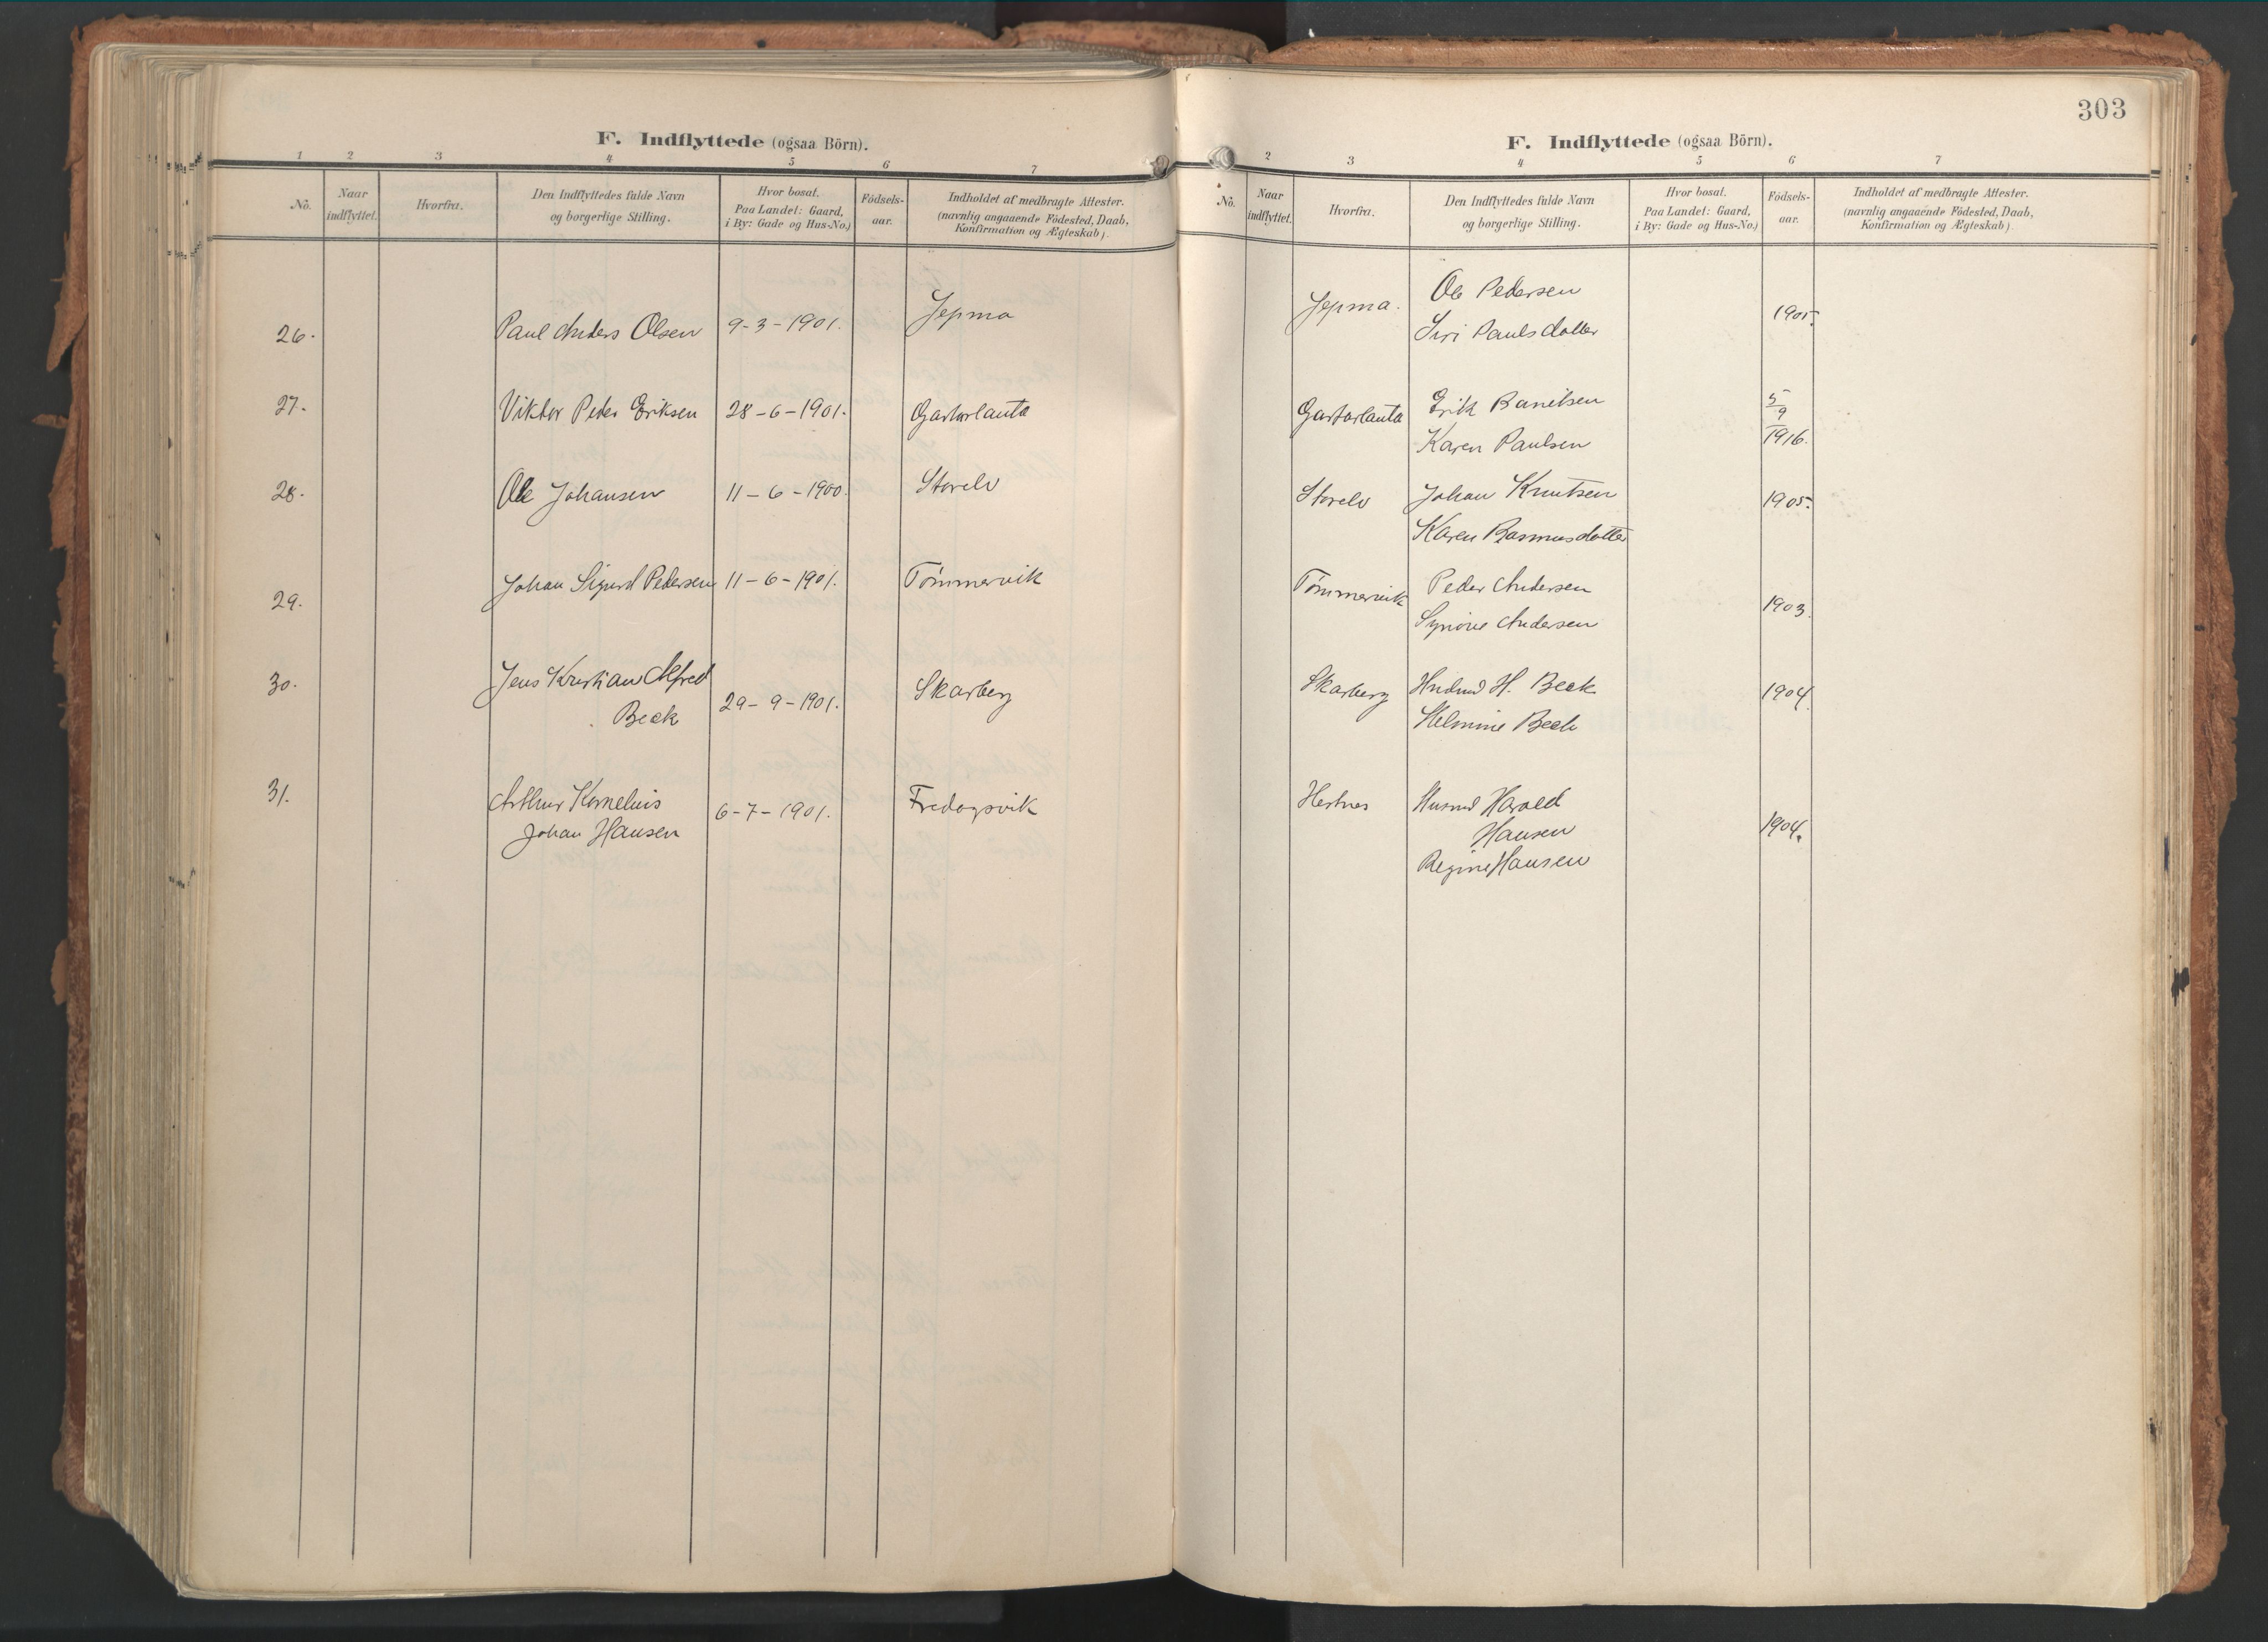 F. Indflyttede (ogsaa Börn).
1 2 3 4 5 6 7
No. Naar indflyttet. Hvorfra. Den Indflyttedes fulde Navn og borgerlige Stilling. Hvor bosat. Paa Landet: Gaard, i By: Gade og Hus-No.) Födsels-aar. Indholdet af medbragte Attester. (navnlig angaaende Födested, Daab, Konfirmation og Ægteskab).
26. Paul Anders Olsen 9-3-1901. Jepma
27. Viktor Peder Eriksen 28-6-1901. Gastorlauta
28. Ole Johansen 11-6-1900. Storelv
29. Johan Sigurd Pedersen 11-6-1901. Tömmervik
30. Jens Kristian Alfred
Beck 29-9-1901. Skarberg
31. Arthur Kornelius
Johan Hansen 6-7-1901. Fredagsvik
303
F. Indflyttede (ogsaa Börn).
2 3 4 5 6 7
No. Naar indflyttet. Hvorfra. Den Indflyttedes fulde Navn og borgerlige Stilling. Hvor bosat. Paa Landet: Gaard, i By: Gade og Hus-No.) Födsels-aar. Indholdet af medbragte Attester. (navnlig angaaende Födested, Daab, Konfirmation og Ægteskab).
Jepma. Ole Pedersen
Siri Paulsdatter
Gastorlauta Erik 5/9
Karen Paulsen 1916.
Storelv Johan Knutsen 1905.
Karen Rasmusdatter
Tömmervik Peder Andersen
Andersen 1903.
Skarberg H. Beck 1904.
Helmine Beck
Harald
Hansen 1904.
Regine Hansen